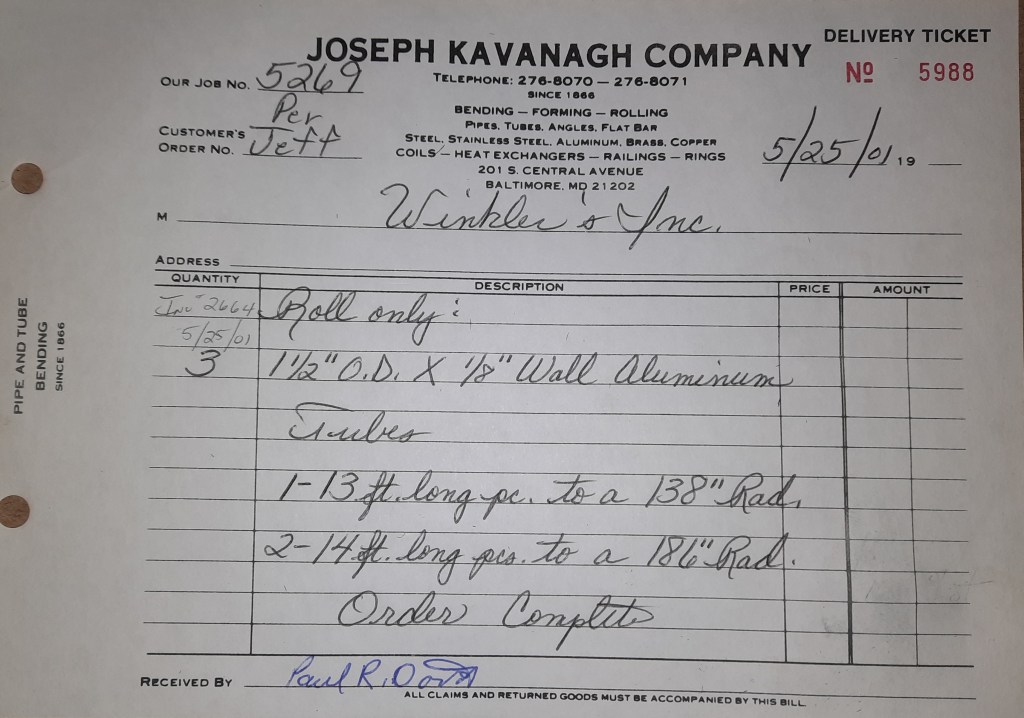 JOSEPH KAVANAGH COMPANY
DELIVERY TICKET
Nº 5988
TELEPHONE: 276-8070 — 276-8071
SINCE 1866
BENDING — FORMING — ROLLING
PIPES, TUBES, ANGLES, FLAT BAR
STEEL, STAINLESS STEEL, ALUMINUM, BRASS, COPPER
COILS — HEAT EXCHANGERS — RAILINGS — RINGS
201 S. CENTRAL AVENUE
BALTIMORE, MD 21202
OUR JOB NO. 5269
CUSTOMER'S ORDER NO. Per Jeff
5/25/01 19
M Winkler's Inc.
ADDRESS
QUANTITY DESCRIPTION PRICE AMOUNT
Inv # 2664 Roll only:
5/25/01
3 1 1/2" O.D. X 1/8" Wall Aluminum
Tubes
1-13 ft. long pc. to a 138" Rad.
2-14 ft. long pcs. to a 186" Rad.
Order Complete
RECEIVED BY Paul R.
ALL CLAIMS AND RETURNED GOODS MUST BE ACCOMPANIED BY THIS BILL
PIPE AND TUBE
BENDING
SINCE 1866